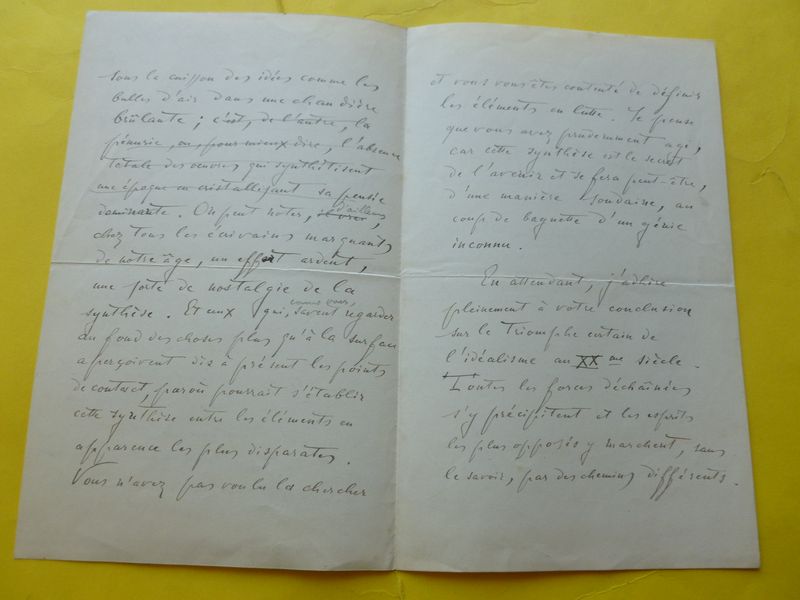 sous la cuisson des idées comme les
bulles d'air dans une chaudière
brûlante ; c'est, de l'autre, la
pénurie, ou, pour mieux dire, l'absence
totale des œuvres qui synthétisent
une époque en cristallisant sa pensée
dominante. On peut noter, d'ailleurs,
chez tous les écrivains marquants
de notre âge, un effort ardent,
une sorte de nostalgie de la
synthèse. Et ceux qui, comme vous, savent regarder
au fond des choses plus qu'à la surface
aperçoivent dès à présent les points
de contact, par où pourrait s'établir
cette synthèse entre les éléments en
apparence les plus disparates.
Vous n'avez pas voulu la chercher
et vous vous êtes contenté de définir
les éléments en lutte. Je pense
que vous avez prudemment agi,
car cette synthèse est le secret
de l'avenir et se fera peut-être,
d'une manière soudaine, au
coup de baguette d'un génie
inconnu.
En attendant, j'adhère
pleinement à votre conclusion
sur le Triomphe certain de
l'idéalisme au XXme siècle.
Toutes les forces déchaînées
s'y précipitent et les esprits
les plus opposés y marchent, sans
le savoir, par des chemins différents.